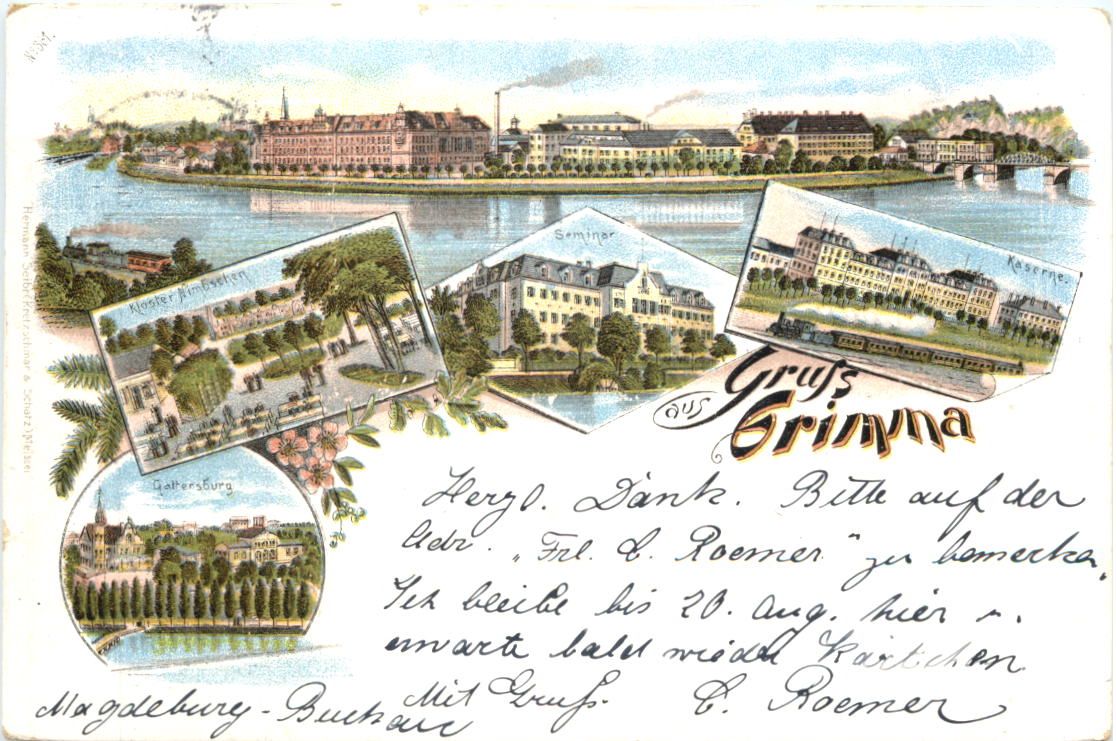 No 361.
Hermann Seibt (Kretzschmar & Schatz) Meissen
Kloster Nimbschen
Seminar
Kaserne.
Gruss
aus
Grimma
Gattersburg
Herzl. Dank. Bitte auf der
Adr. „Frl. C. Roemer“ zu bemerken.
Ich bleibe bis 20. Aug. hier u.
erwarte bald wieder Kärtchen
Mit Gruß. C. Roemer
Magdeburg-Buckau